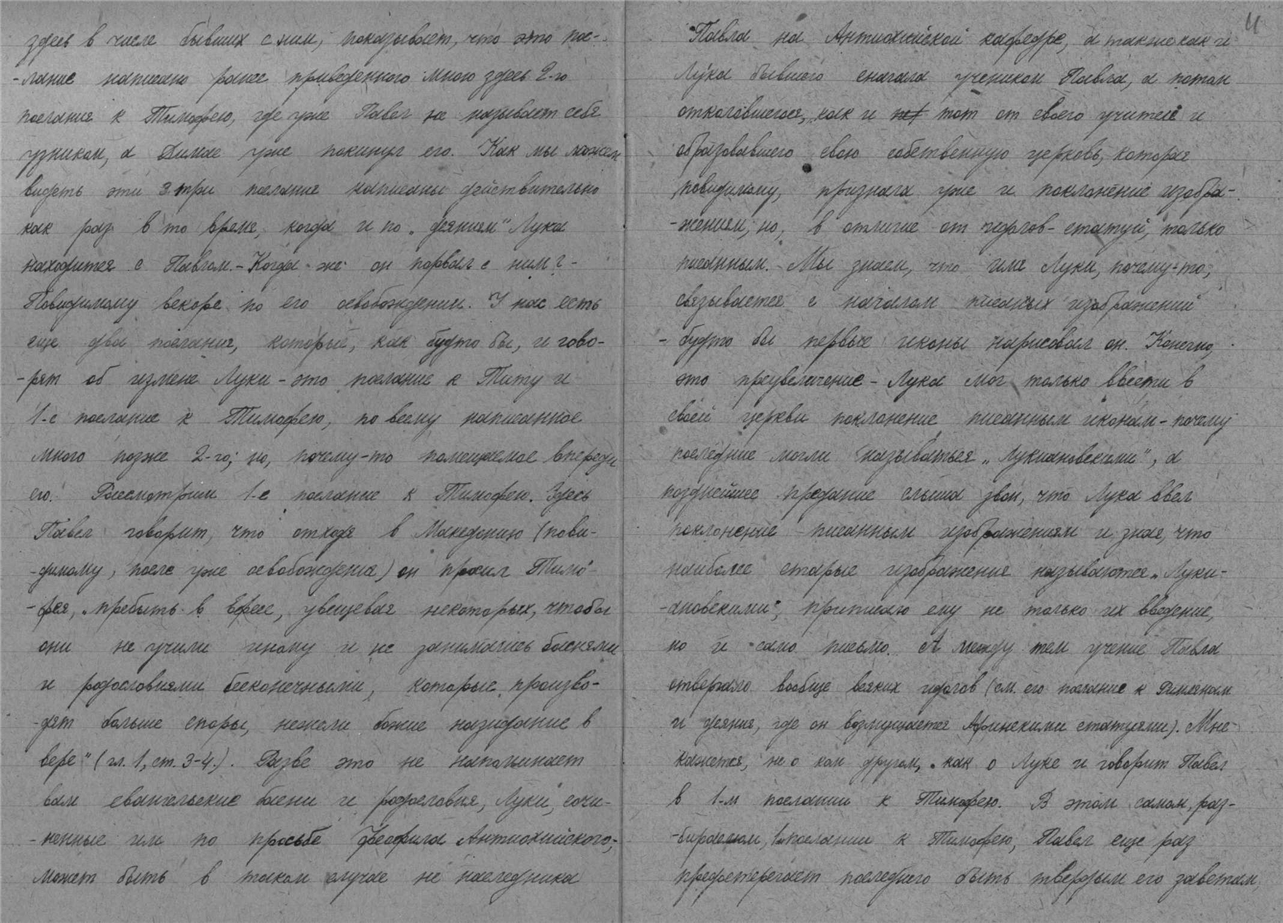 здесь в числе бывших с ним, показывает, что это по-
-слание написано ранее приведенного мною здесь 2-го
послания к Тимофею, где уже Павел не называет себя
узником, а Димас уже покинул его. Как мы можем
видеть эти 3 три послания написаны действительно
как раз в то время, когда и по „деяниям" Лука
находится с Павлом.- Когда-же он порвал с ним?-
Повидимому вскоре по его освобождении. У нас есть
еще два послания, которые, как будто бы, и гово-
-рят об измене Луки - это послание к Титу и
1-е послание к Тимофею, по всему написанное
много позже 2-го; но, почему-то помещаемое впереди
его. Рассмотрим 1-е послание к Тимофею. Здесь
Павел говорит, что отходя в Македонию (пови-
-димому, после уже освобождения) он просил Тимо-
-фея, „пребыть в Ефесе, увещевая некоторых, чтобы
они не учили иному и не занимались баснями
и родословиями бесконечными, которые произво-
-дят больше споры, нежели божие назидание в
вере" (гл. 1, ст. 3-4.). Разве это не напоминает
вам евангельские басни и родословия, Луки, сочи-
-ненные им по просьбе Феофила Антиохийского,
может быть в таком случае не наследника
11
Павла на Антиохийской кафедре, а также как и
Лука бывшего сначала учеником Павла, а потом
отколовшегося, как и тот от своего учителя и
образовавшего свою собственную церковь, которая
повидимому, признала уже и поклонение изобра-
-жениям, но, в отличие от идолов-статуй, только
писанным. Мы знаем, что имя Луки, почему-то,
связывается с началом писаных изображений
- будто бы первые иконы нарисовал он. Конечно,
это преувеличение - Лука мог только ввести в
своей церкви поклонение писанным иконам - почему
последние могли называться „Лукиановскими", а
позднейшее предание слыша звон, что Лука ввел
поклонение писанным изображениям и зная, что
наиболее старые изображения называются „Луки-
-ановскими", приписало ему не только их введение,
но и само письмо. А между тем учение Павла
отвергало вообще всяких идолов (см. его послание к Римлянам
и деяния, где он возмущается Афинскими статуями). Мне
кажется, не о ком другом, как о Луке и говорит Павел
в 1-м послании к Тимофею. В этом самом, раз-
-бираемом, послании к Тимофею, Павел еще раз
предостерегает последнего быть твердым его заветам,